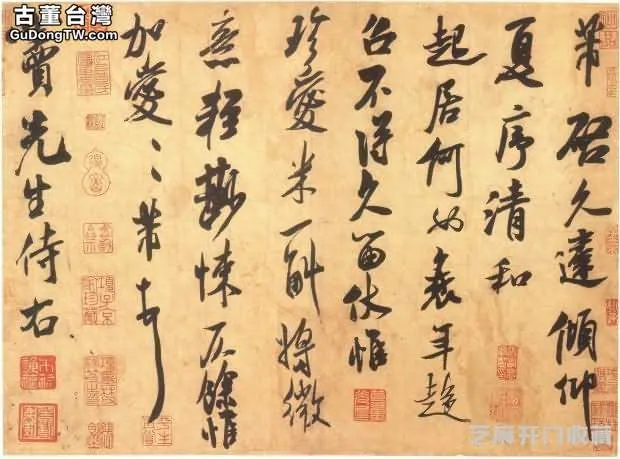 古董台灣
GuDongTW.com
芾啓久違傾仰
夏序清和
起居何如衰年趨
召不得久留伏惟
珍愛米一斛将微
意輕尠悚仄餘惟
加愛〻芾頓首
竇先生侍右
芝麻开门收藏